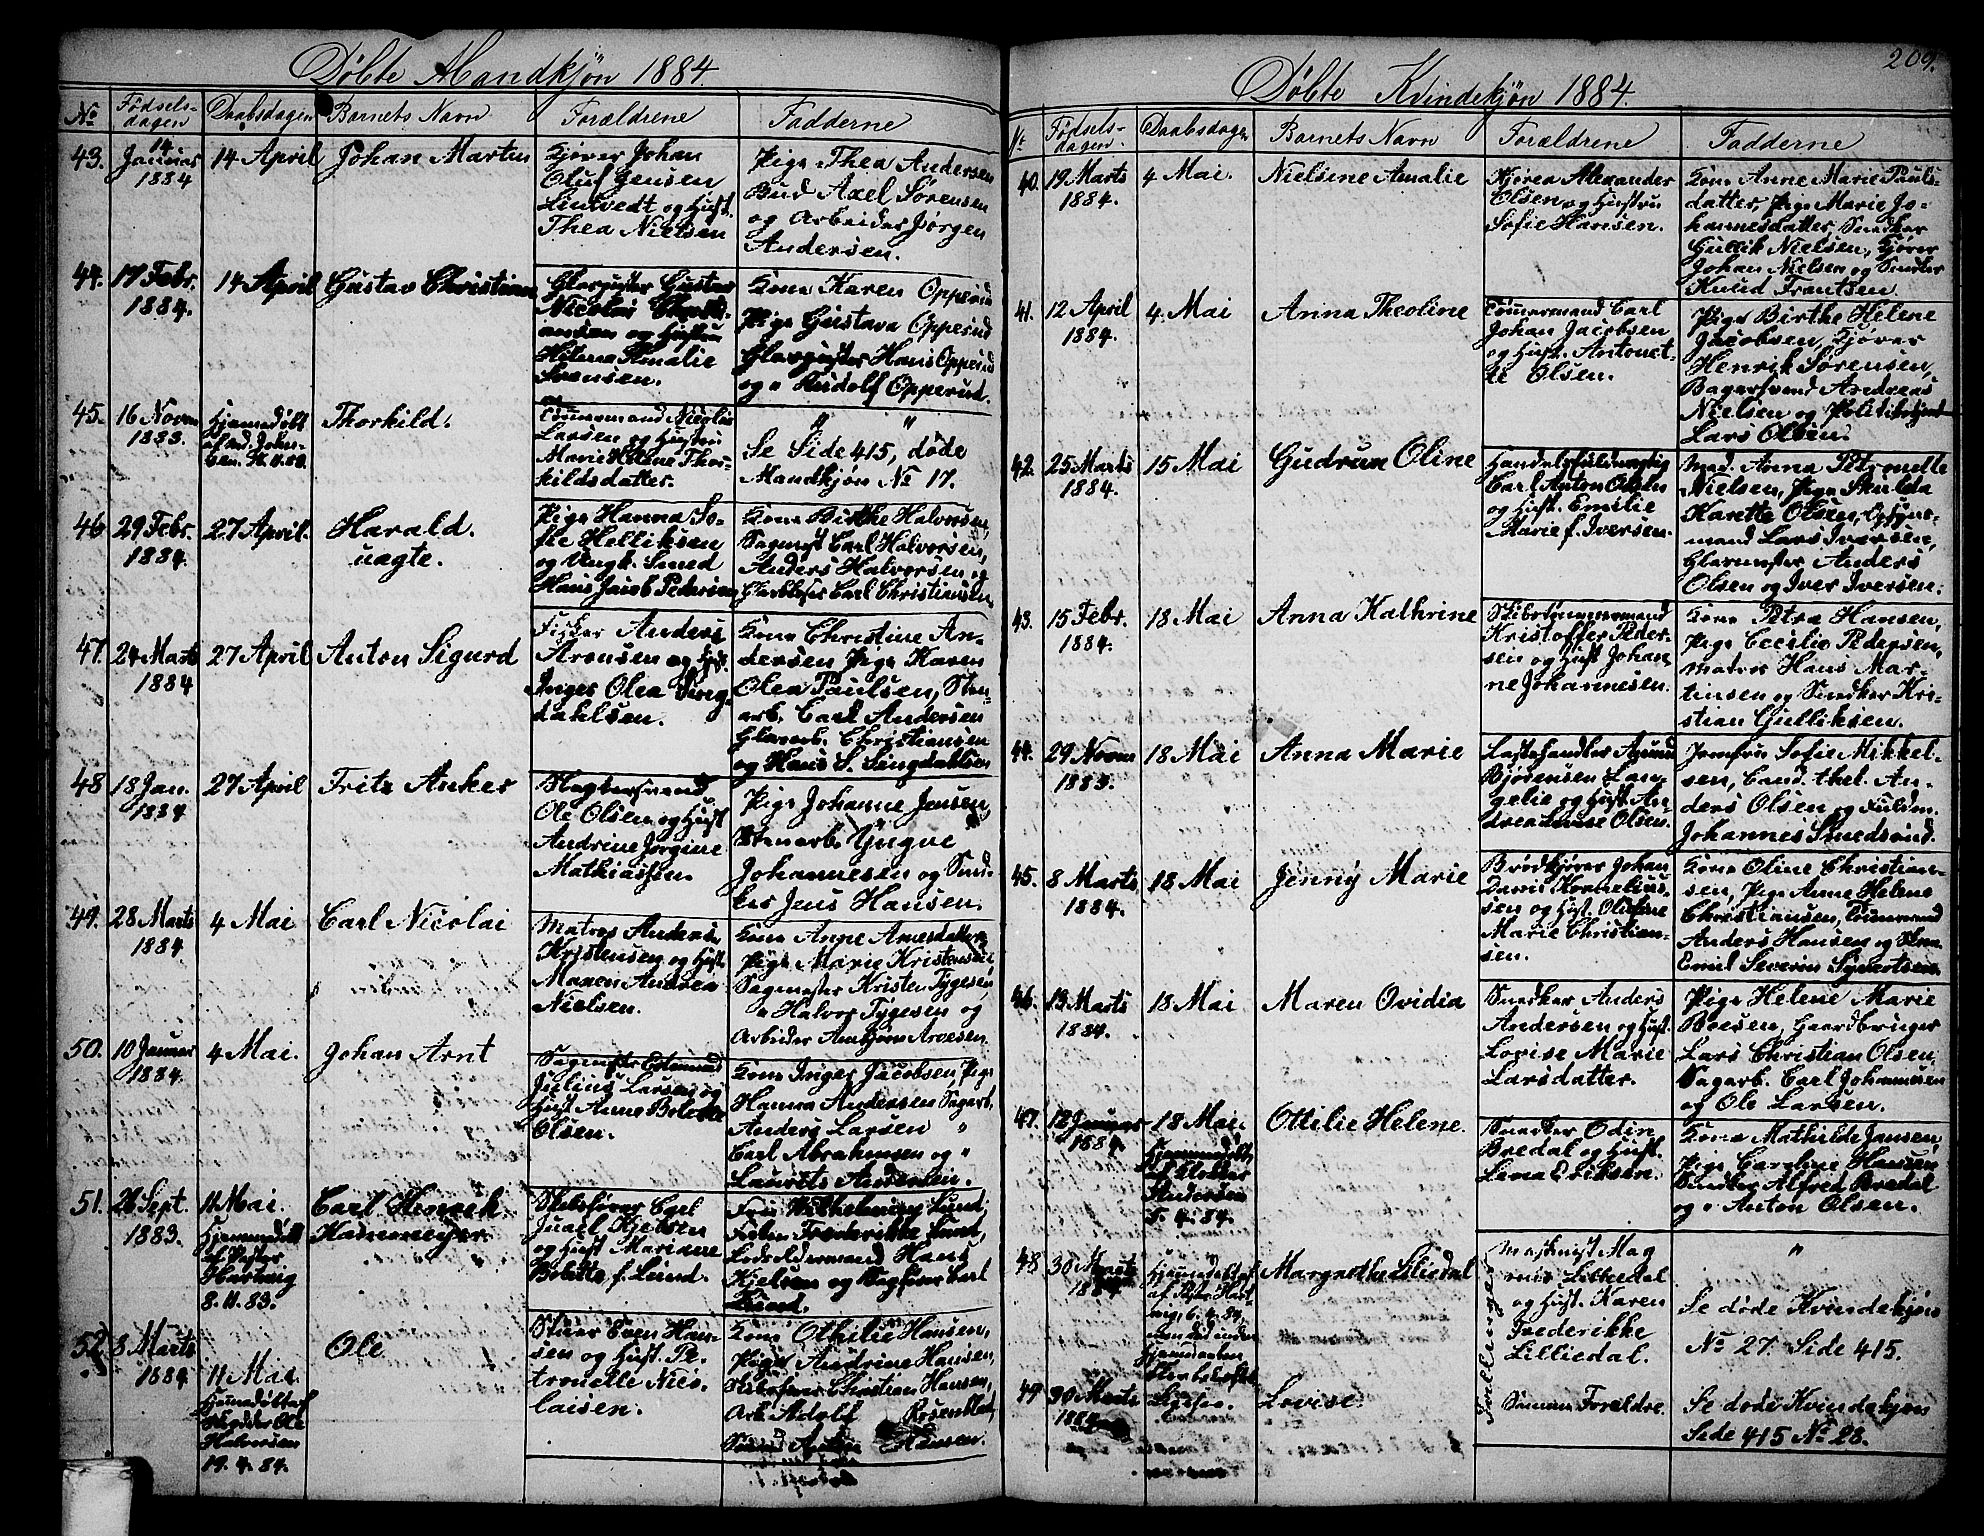 Døbte Mandkjøn 1884.
№ Fødsels-dagen Daabsdagen Barnets Navn Forældrene Fadderne
43. 14 Januar 1884 14 April Johan Martin
Kjører Johan
Oluf Jensen
Lintvedt og Hust.
Thea Nielsen
Pige Thea Andersen
Bud Axel Sørensen
og Arbeider Jørgen
Andersen.
44. 17 Febr. 1884. 14 April Gustav Christian
Glaspuster Gustav
Nicolai Christi-
ansen og Hustru
Helena Amalie
Svensen.
Kone Karen Opperud
Pige Gustava Opperud
Glaspuster Hans Opperud
og " Rudolf Opperud.
45. 16 Novem 1883. Hjemmedøbt af
Thorkild.
Tømmermand Nicolai
Larsen og Hustru
Marie Helene Thor-
kildsdatter.
" "
Se Side 415, døde
Mandkjøn № 17.
46 29 Febr. 1884. 27 April. Harald.
uægte.
Pige Hanna So-
fie Helliksen
og Ungk. Smed
Hans Jacob Pedersen
Kone Birthe Halvorsen,
Sagmest. Carl Halvorsen,
Anders Halvorsen og
Carl Christiansen.
47. 24 Marts 1884 27 April Anton Sigurd
Fisker Anders
Aronsen og Hust.
Inger Olea Seng-
dahlsen.
Kone Christine An-
dersen Pige Karen
Olea Paulsen, Sten-
arb. Carl Andersen
Glasarb. Christiansen
og Hans S. Sengdahlsen
48 18 Jan. 1884 27 April Fritz Anker
Slagtersvend
Ole Olsen og Hust
Andrine Jørgine
Mathiassen.
Pige Johanne Jensen,
Stenarb. Yngve
Johannesen og Sned-
ker Jens Hansen.
49. 28 Marts 1884 4 Mai Carl Nicolai
Matros Andreas
Kristensen og Hust.
Maren Andrea
Nielsen.
Kone Anne Arnesdatter
Pige Marie Kristensen
Sagmester Kristen Tygesen
" Halvor Tygesen og
Arbeider Ambjørn Arvesen
50. 10 Januar 1884. 4 Mai. Johan Arnt
Sagmester Edmund
Julius Larsen og
Hust Anne Bolette
Olsen.
Kone Inger Jacobsen, Pige
Hanna Andersen Sagarb.
Anders Larsen "
Carl Abrahmsen og "
Laurits Andersen.
51. 26 Sept. 1883. 11 Mai.
Hjemmedøbt
af Pastor
Hartwig
8. 11. 83.
Carl Henrik
Hammeyer.
Skibsfører Carl
Juael Kjelsen
og Hust Mariane
Bolette f. Lund.
Fru Wilhelmine Lund,
Frøken Frederikke Lund,
Lodsoldermand Hans
Kjelsen og Sagfører Carl
Lund.
52 8 Marts 1884 11 Mai
Hjemmedøbt af
Ole
Halvorsen
19. 4. 84.
Ole
Stuer Even Han-
sen og Hust. Pe-
tronelle Nico-
laisen.
Kone Othilie Hansen,
Pige Andrine Hansen,
Skibsfører Christian Hansen,
Arb. Adolf Rosenblad,
Smed Anton Hansen.
209.
Døbte Kvindekjøn 1884.
№ Fødsels-dagen. Daabsdagen Barnets Navn Forældrene Fadderne
40. 19 Marts 1884. 4 Mai. Nielsine Amalie
Kjører Alexander
Olsen og Hustru
Sofie Hansen.
Kone Anne Marie Pauls-
datter, Pige Marie Jo-
hannesdatter, Snedker
Gullik Nielsen, Kjører
Johan Nielsen og Snedker
Knud Frantsen.
41. 12 April 1884. 4 Mai Anna Theoline
Tømmermand Carl
Johan Jacobsen
og Hust. Antonet-
te Olsen.
Pige Birthe Helene
Jacobsen, Kjører
Henrik Sørensen,
Bagersvend Andreas
Nielsen og Politibetjent
Lars Olsen.
42. 25 Marts 1884. 15 Mai Gudrun Oline
Handelsfuldmægtig
Carl Anton Olsen
og Hust. Emilie
Marie f. Iversen.
Mad. Anna Petronelle
Nielsen, Pige Skulda
Karette Olsen, Opsyns-
mand Lars Iversen,
Glasmester Anders
Olsen og Iver Iversen.
43. 15 Febr. 1884. 18 Mai Anna Kathrine
Skibstømmermand
Kristoffer Peder-
sen og Hust Johan-
ne Johannesen.
Kone Petra Hansen,
Pige Cecilie Pedersen,
Matros Hans Mar-
tinsen og Snedker Kri-
stian Gulliksen.
44. 29 Novem 1883. 18 Mai Anna Marie
Bjørensen Lan-
gelie og Hust. An-
drea Lovise Olsen.
Jomfru Sofie Mikkel-
sen, Cand. theol. An-
ders Olsen og Fuldm.
Johannes Smedsrud.
45. 8 Marts 1884. 18 Mai Jenny Marie
Brødkjører Johan
Davis Kornelius-
sen og Hust. Olufine
Marie Christian-
sen.
Kone Oline Christian-
sen, Pige Anne Helene
Christiansen, Tømmermand
Anders Hansen og
Emil Severin Syvertsen.
46. 13 Marts 1884. 18 Mai Maren Ovidia
Snedker Anders
Andersen og Hust.
Lovise Marie
Larsdatter.
Pige Helene Marie
Boesen, Gaardbruger
Lars Christian Olsen,
Sagarb. Carl Johannesen
og Ole Larsen.
47. 12 Januar 1884. 18 Mai.
Hjemmedøbt
af
Andersen
5. 4. 84.
Ottilie Helene.
Snedker Odin
Bredal og Hust.
Lena Eriksen.
Kone Mathilde Jansen,
Pige Caroline Hansen
Snedker Alfred Bredal
og " Anton Olsen.
48 30 Marts 1884
Hjemmedøbt
af Pastor Hart-
wig 6. 4. 84,
Margrethe Liliedal
Tvillinger
Maskinist Mag-
nus Lilliedal
og Hust. Karen
Frederikke
Lilliedal.
"
Se døde Kvindekjøn
№ 27. Side 415.
49 30 Marts 1884 Ligesaa. Lovise.
Samme Forældre.
Se døde Kvindekjøn
Side 415 № 28.